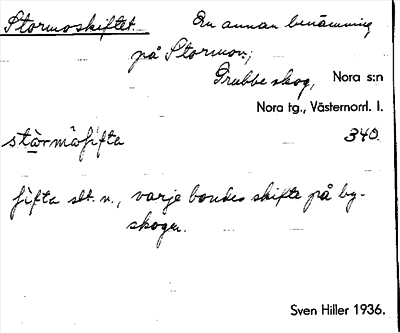 Stormoskiftet. En annan benämning
på Stormon;
Grubbe skog, Nora s:n
Nora tg., Västernorrl. l.
stàrmåʃifta 340.
ʃifta slt. n., varje bondes skifte på by-
skogen.
Sven Hiller 1936.